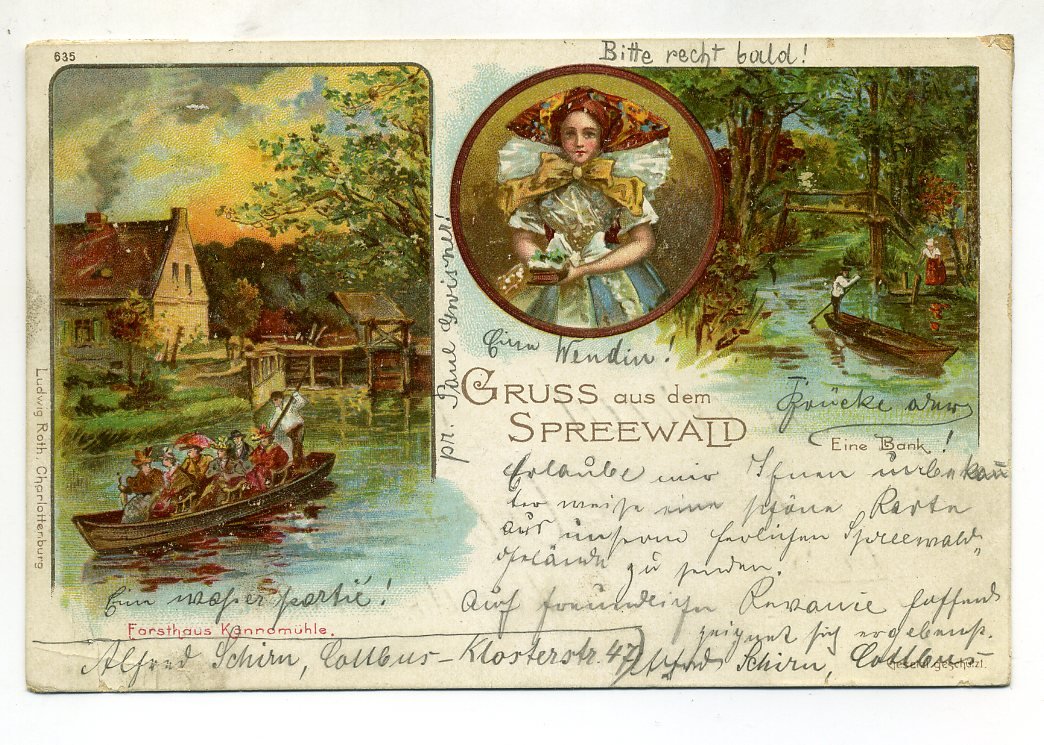 635
Bitte recht bald!
pr. Paul
Eine Wendin!
GRUSS aus dem
SPREEWALD
Brücke oder
Eine Bank!
Erlaube mir Ihnen unbekann
ter weise eine schöne Karte
aus unserm herlichen Spreewald„
gelände zu senden.
Auf freundliche Revanie hoffend
zeignet sich ergebenst.
Alfred Schirn, Cottbus
Ein waßer partie!
Forsthaus Kannomühle.
Alfred Schirn, Cottbus - Klosterstr. 47
Gesetzl. geschützt.
Ludwig Roth, Charlottenburg